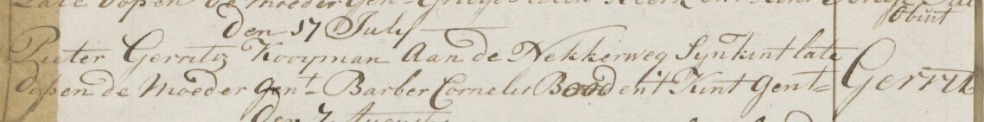 Late dopen de moeder gen=
obiit
Den 17 July
Pieter Gerritz Kooyman Aan de Nekkerweg Syn kint late
dopen de Moeder gent= Barber Cornelis Bood en't Kint gent= Gerrit
Den 7 Augustus